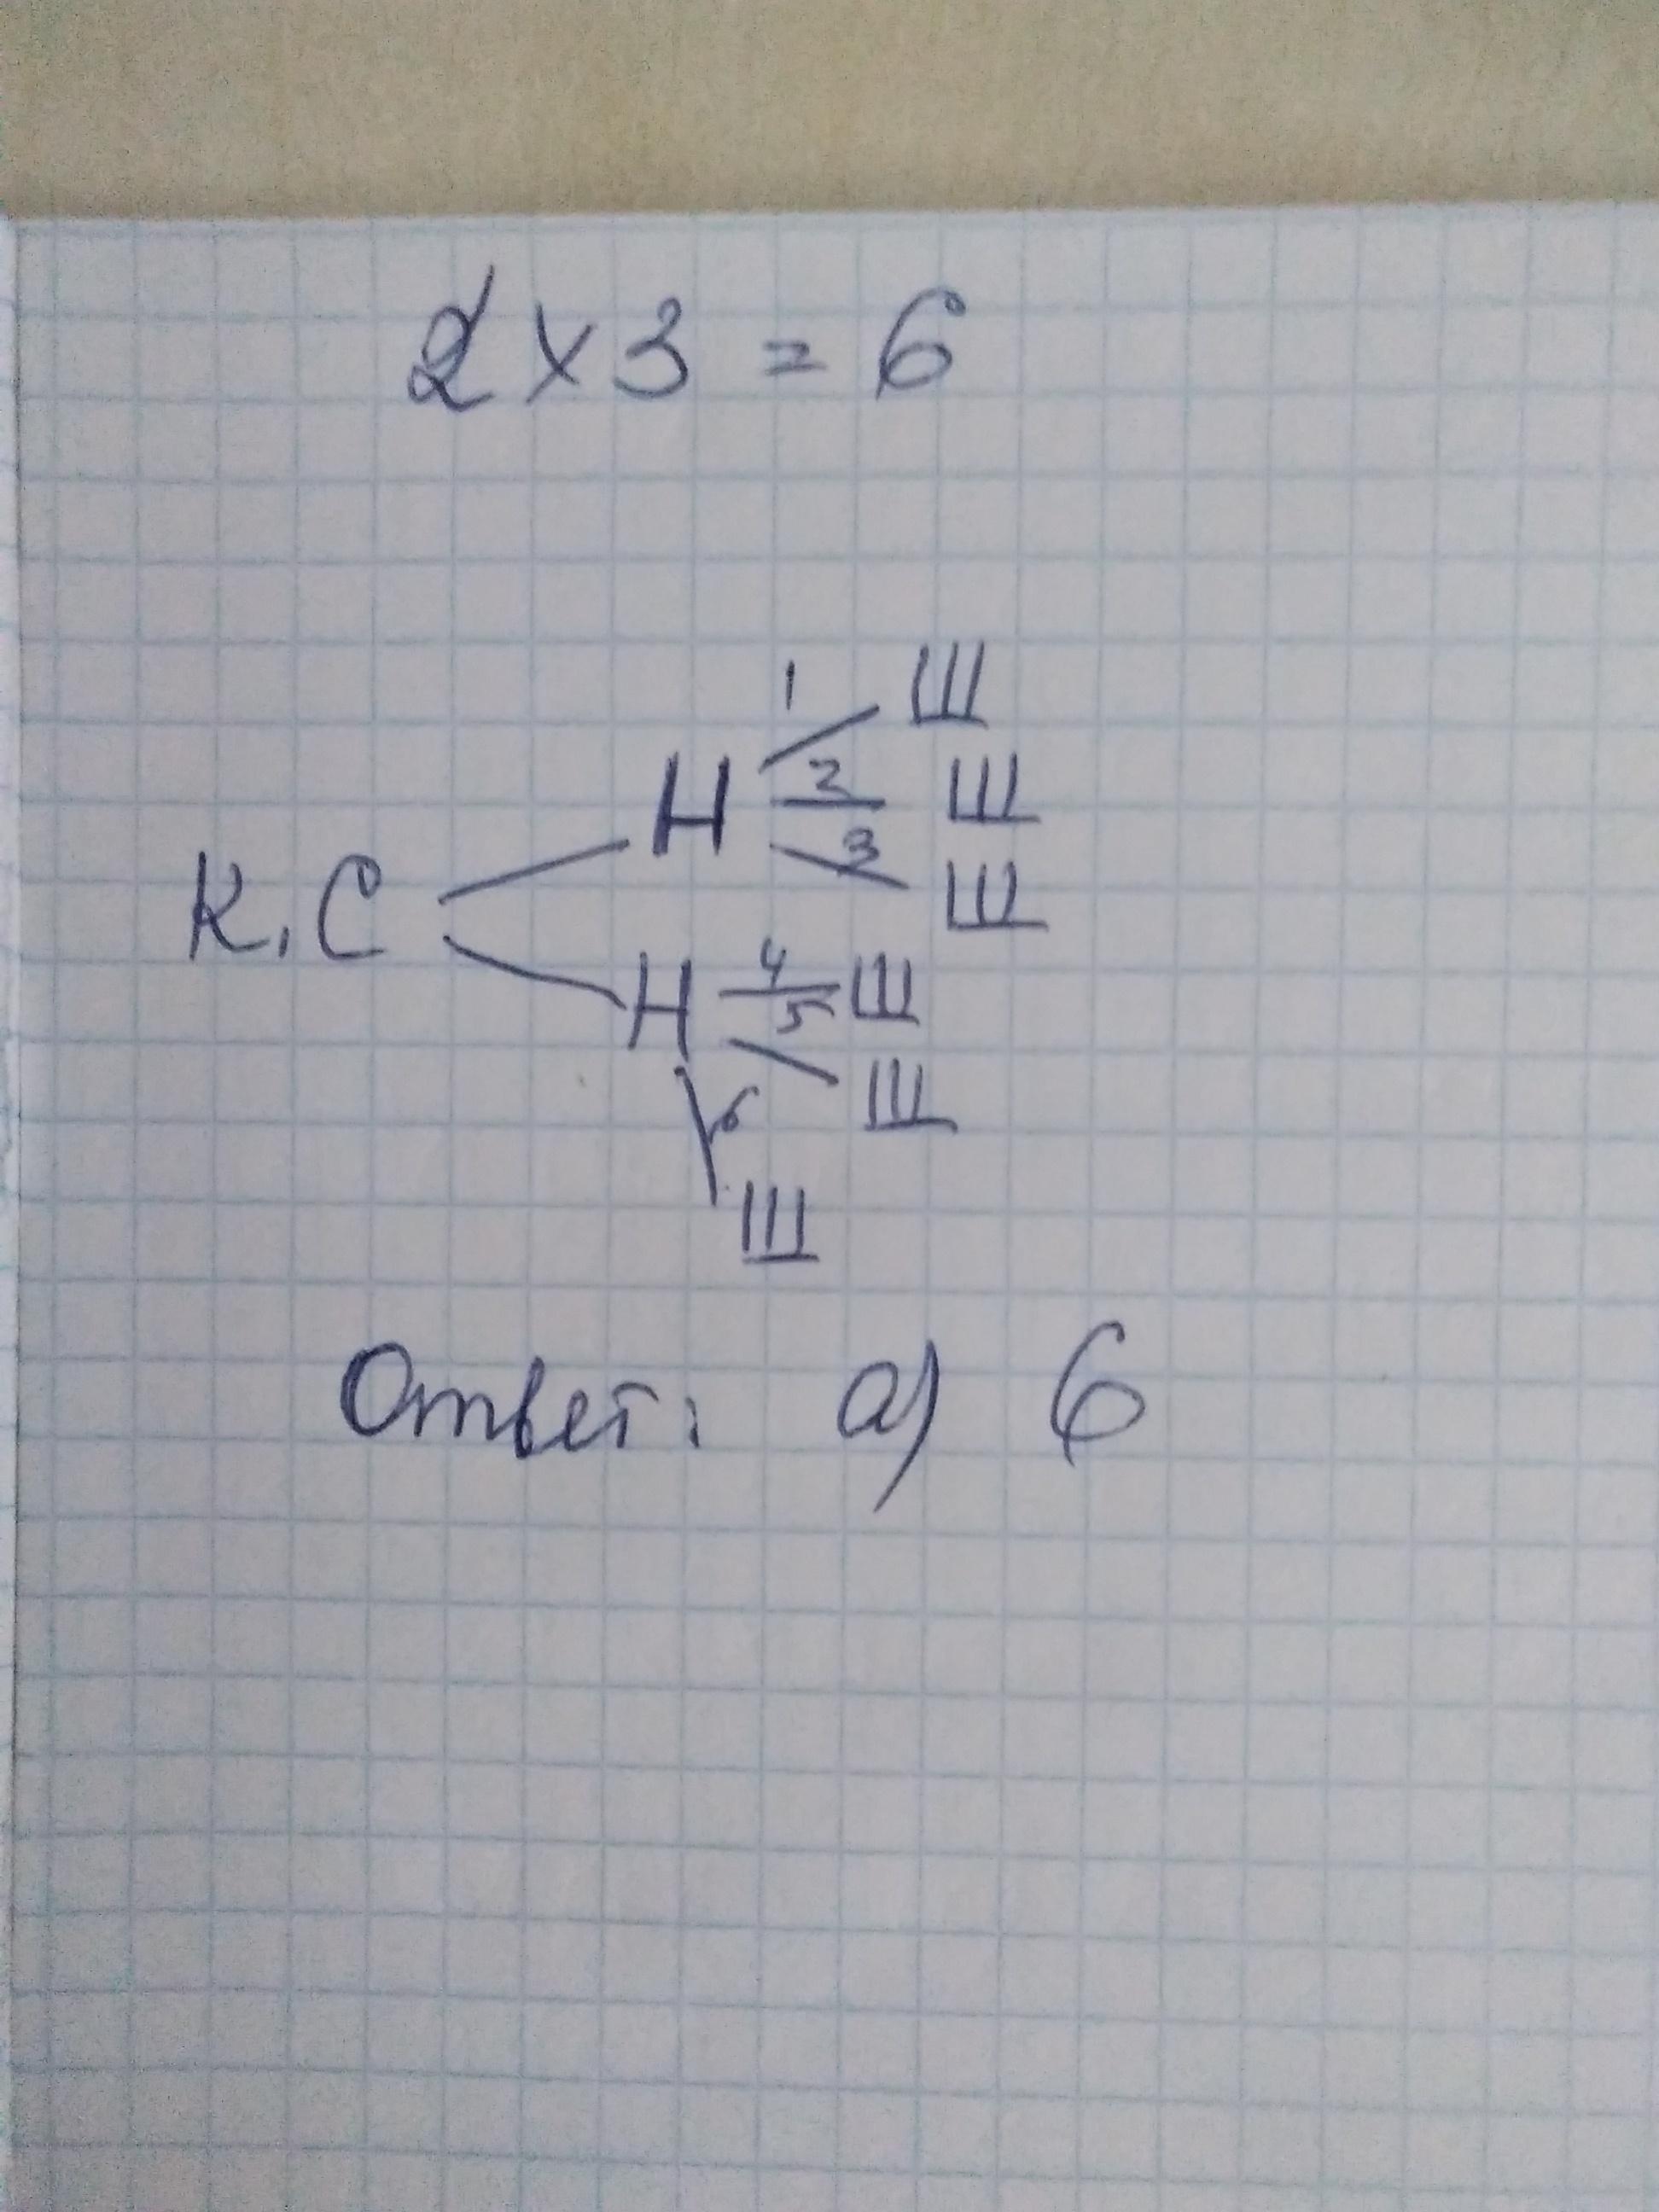 2 × 3 = 6
1 Ш
Н 2 Ш
3 Ш
К.С
Н 4 Ш
5 Ш
6
Ш
Ответ: а) 6